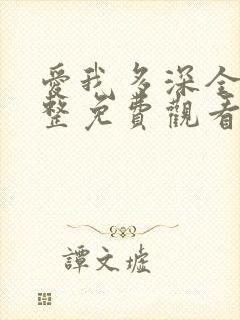 愛我多深全
整免費觀看
譚文墟